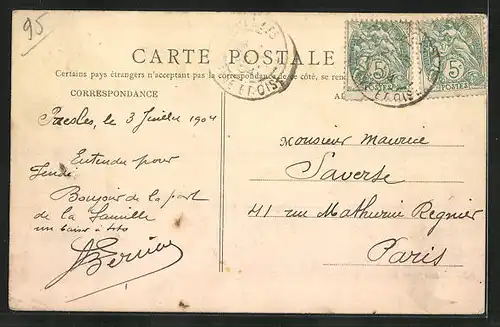 95
CARTE POSTALE
Certains pays étrangers n'acceptent pas la correspondance de ce côté, se rend
CORRESPONDANCE
Presles, le 3 Juillet 1904
Entendu pour
Jeudi
Bonjour de la part
de la famille
un baiser à
Monsieur Maurice
Saverse
41 rue Mathurin Régnier
Paris
5 5
POSTES POSTES
ET-OISE
ET-OISE